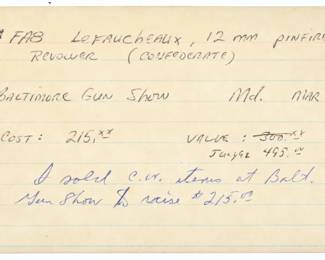 FAB LEFAUCHEAUX, 12 MM PINFIR
REVOLVER (CONFEDERATE)
BALTIMORE GUN SHOW Md. MAR
COST: 215.xx VALUE: 300.xx
495.00
I sold C.W. items at Balt.
Gun Show to raise $215.00